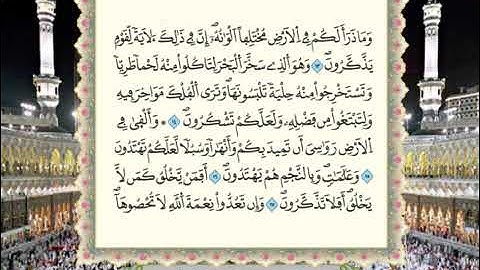 وَمَا ذَرَأَ لَكُمْ فِي الْأَرْضِ مُخْتَلِفًا أَلْوَانُهُ إِنَّ فِي ذَٰلِكَ لَآيَةً لِقَوْمٍ
يَذَّكَّرُونَ ۝١٣ وَهُوَ الَّذِي سَخَّرَ الْبَحْرَ لِتَأْكُلُوا مِنْهُ لَحْمًا طَرِيًّا
وَتَسْتَخْرِجُوا مِنْهُ حِلْيَةً تَلْبَسُونَهَا وَتَرَى الْفُلْكَ مَوَاخِرَ فِيهِ
وَلِتَبْتَغُوا مِنْ فَضْلِهِ وَلَعَلَّكُمْ تَشْكُرُونَ ۝١٤ * وَأَلْقَىٰ فِي
الْأَرْضِ رَوَاسِيَ أَنْ تَمِيدَ بِكُمْ وَأَنْهَارًا وَسُبُلًا لَعَلَّكُمْ تَهْتَدُونَ
۝١٥ وَعَلَامَاتٍ وَبِالنَّجْمِ هُمْ يَهْتَدُونَ ۝١٦ أَفَمَنْ يَخْلُقُ كَمَنْ لَا
يَخْلُقُ أَفَلَا تَذَّكَّرُونَ ۝١٧ وَإِنْ تَعُدُّوا نِعْمَةَ اللَّهِ لَا تُحْصُوهَا